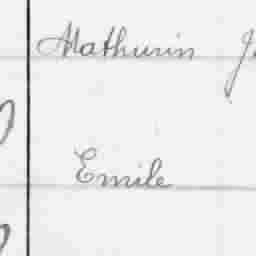 Mathurin
Emile